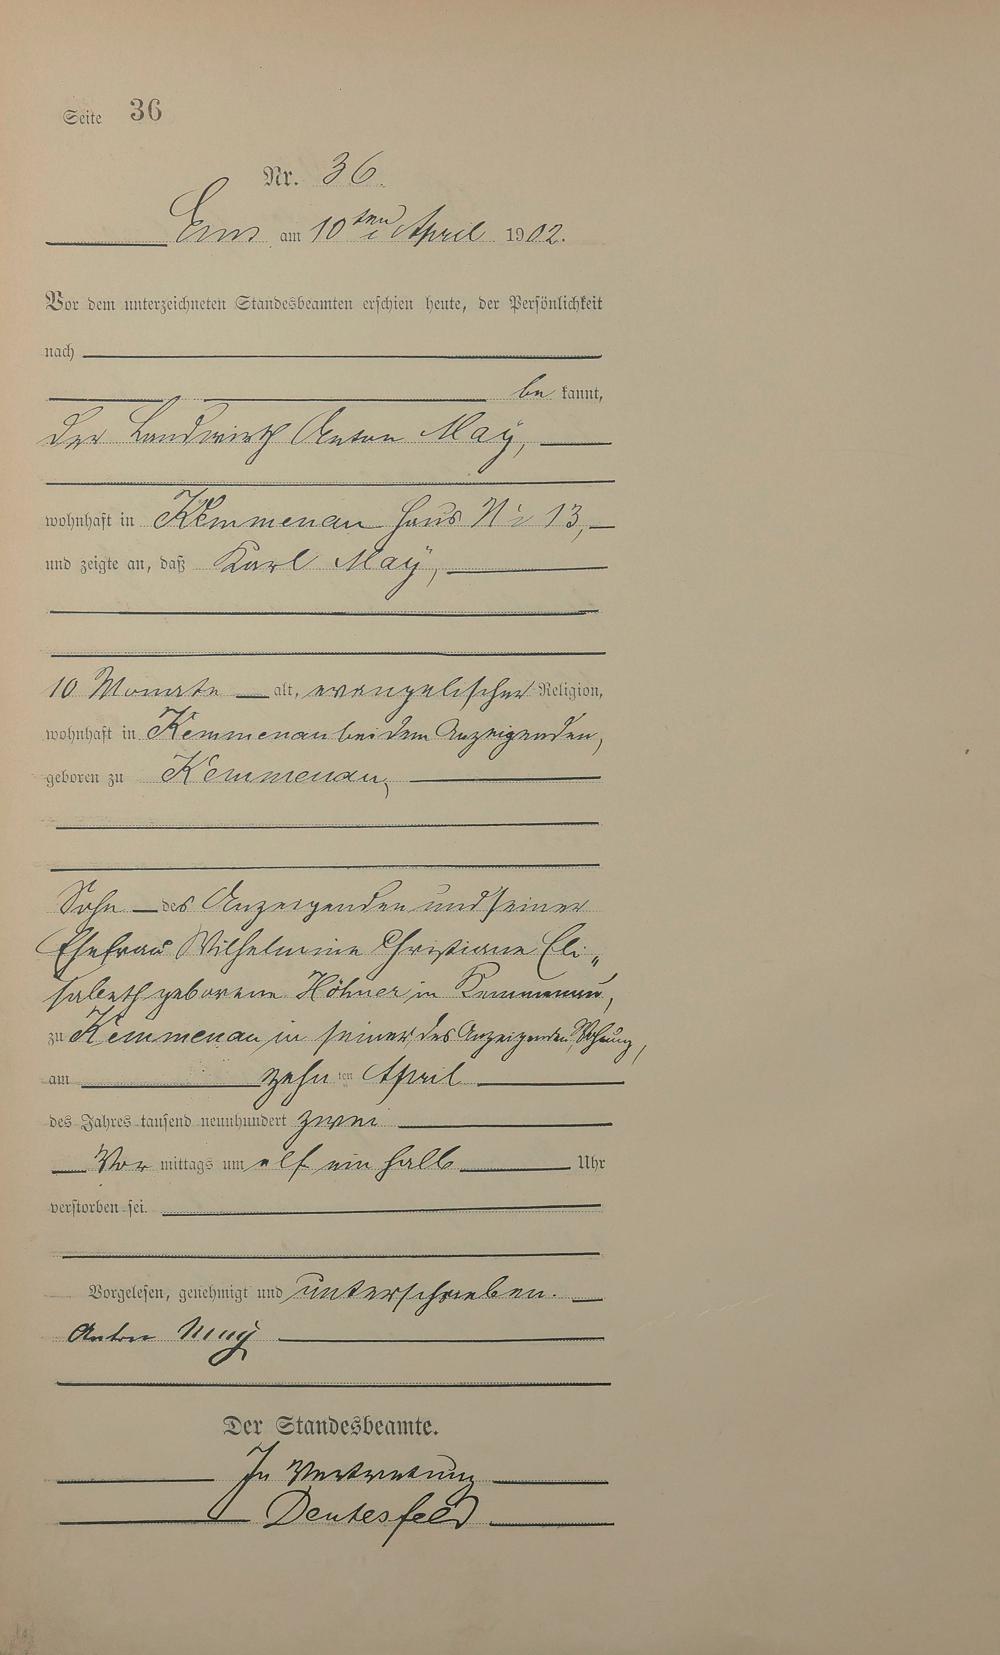 Seite 36
Nr. 36.
Ems am 10ten April 1902.
Vor dem unterzeichneten Standesbeamten erschien heute, der Persönlichkeit
nach
be kannt,
der Landwirth Anton Maÿ,
wohnhaft in Kemmenau Haus No 13,
und zeigte an, daß Karl Maÿ,
10 Monate alt, evangelischer Religion,
wohnhaft in Kemmenau bei dem Anzeigenden,
geboren zu Kemmenau,
Sohn des Anzeigenden und seiner
Ehefrau Wilhelmine Christiane Eli„
sabeth geborene Höhner in Kemmenau,
zu Kemmenau in seiner des Anzeigenden Wohnung,
am zehn ten April
des Jahres tausend neunhundert zwei
Vor mittags um elf ein halb Uhr
verstorben sei.
Vorgelesen, genehmigt und unterschrieben.
Anton Maÿ
Der Standesbeamte.
In Vertretung
Deutesfeld